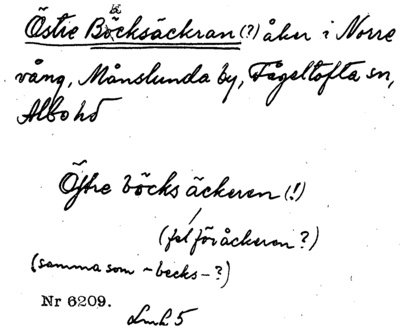 Östre Böcksäckran (?) åker i Norre
vång, Månslunda by, Fågeltofta sn,
Albo hd
Östre böcks äckeren (!)
(fel för åckeren?)
(samma som -becks-?)
Nr 6209.
Lmh 5